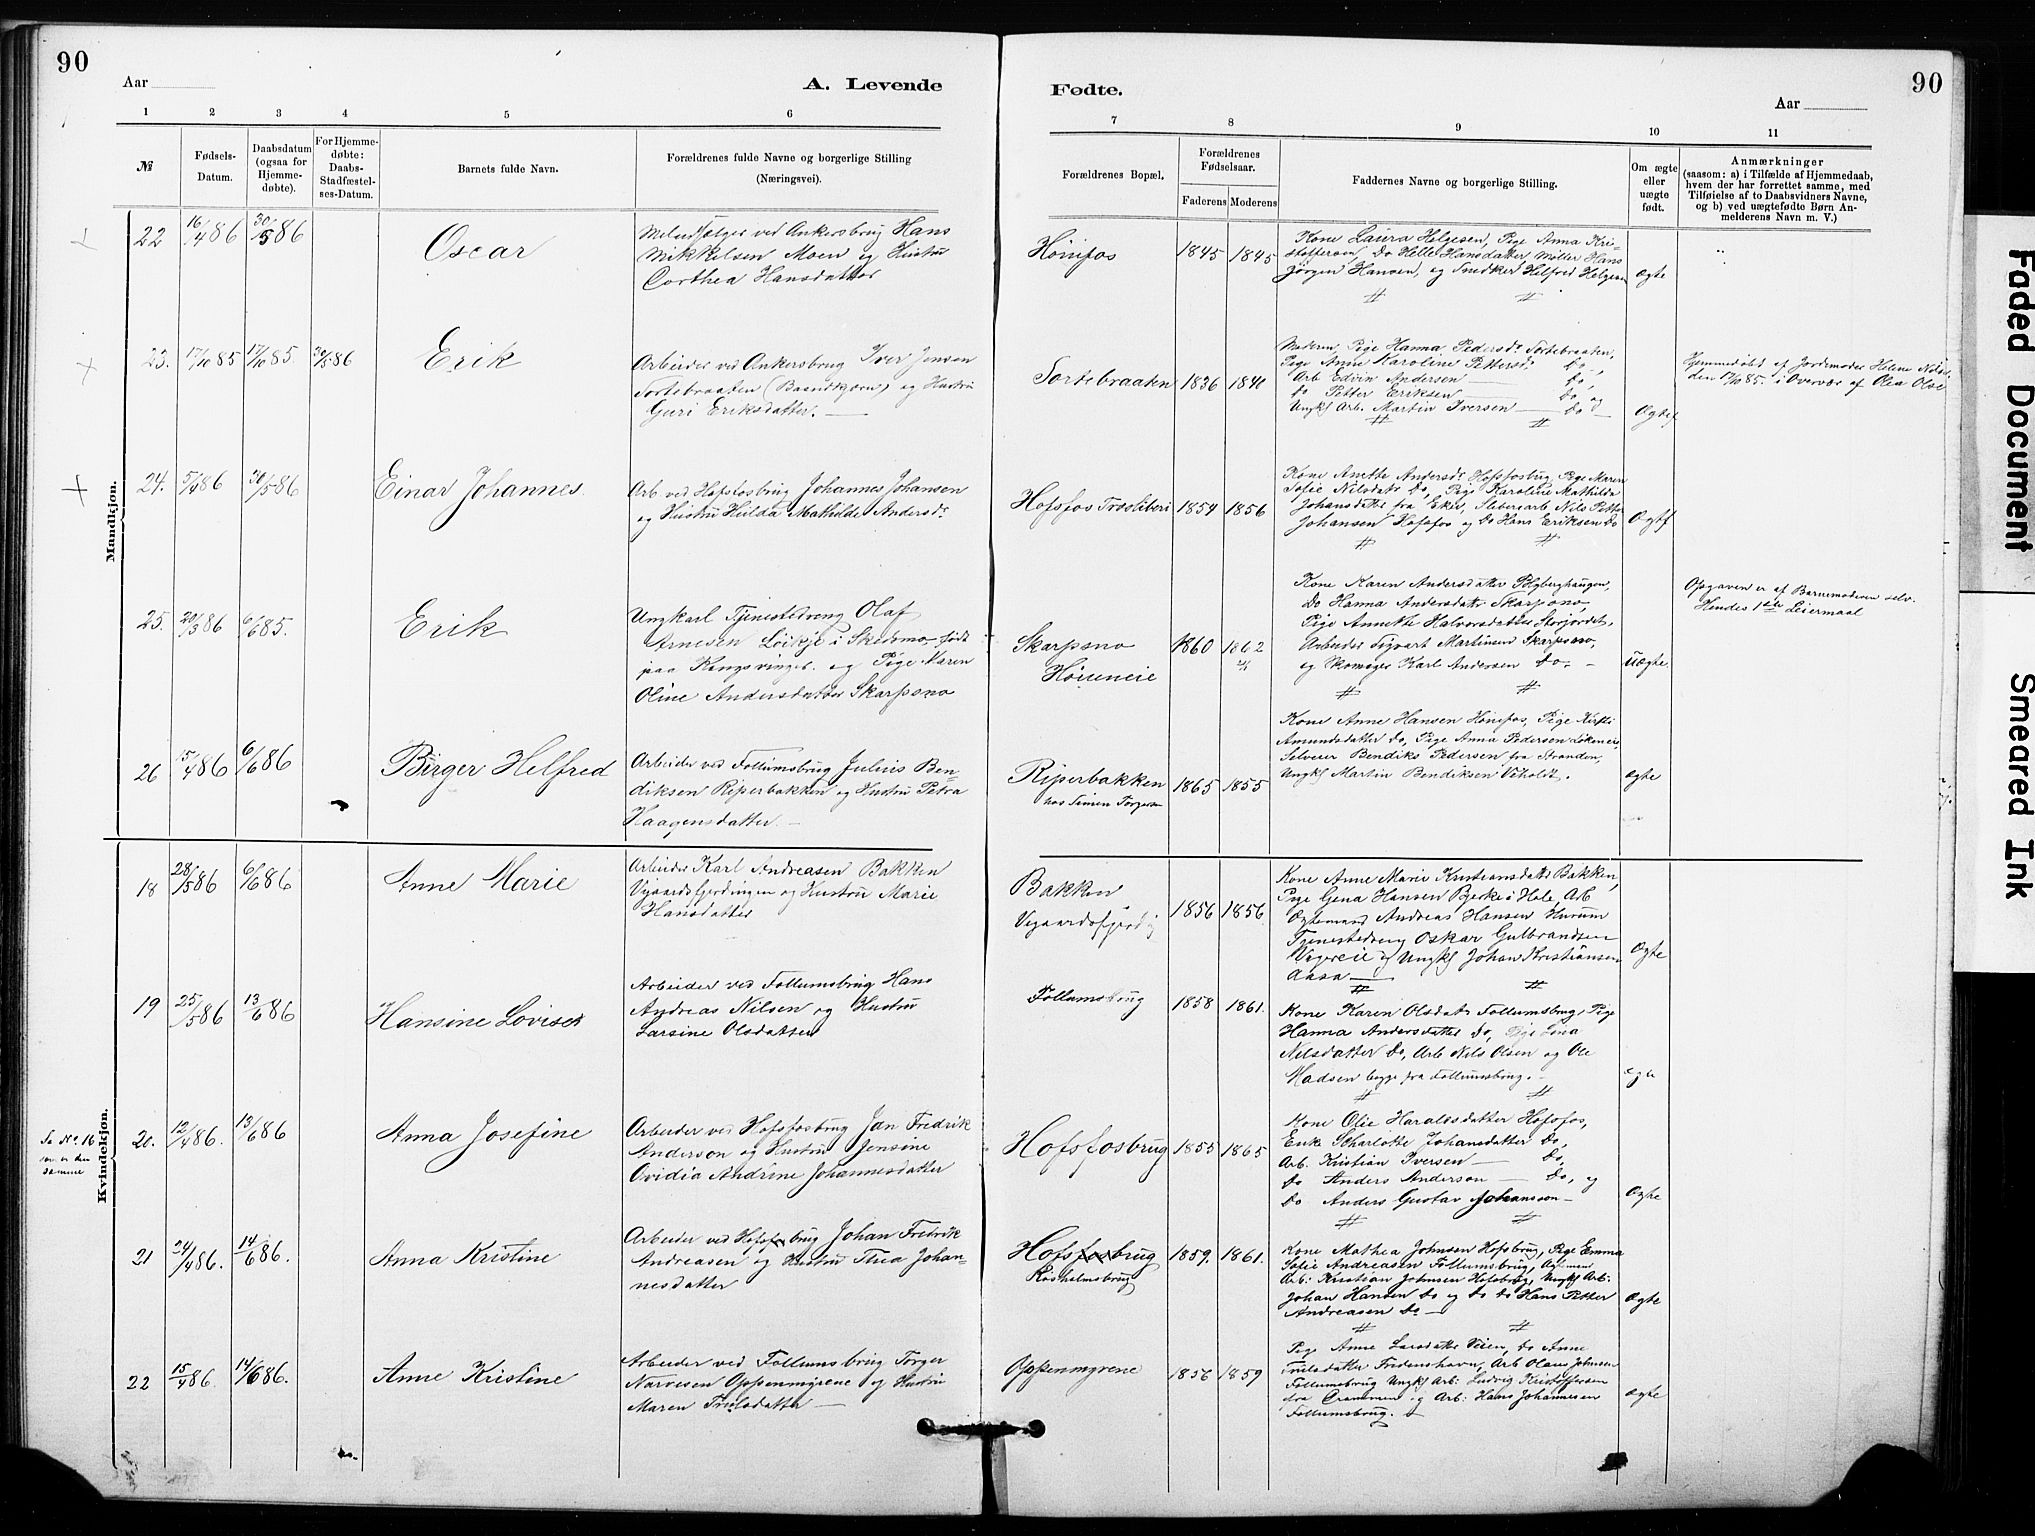 90
Aar
A. Levende
1 2 3 4 5 6
№
Fødsels-
Datum.
Daabsdatum
(ogsaa for
Hjemme-
døbte).
For Hjemme-
døbte:
Daabs-
Stadfæstel-
ses-Datum.
Barnets fulde Navn.
Forældrenes fulde Navne og borgerlige Stilling
(Næringsvei).
Mandkjøn.
22 16/4 86 30/5 86 Oscar
ved Ankersbrug Hans
Mikkelsen Moen og Hustru
Corthea Hansdatter
23. 17/10 85 17/10 85. 30/5 86 Erik
Arbeider ved Ankersbrug Iver Jensen
Sortebraaten og Hustru
Guri Eriksdatter. —
24. 5/4 86 30/5 86 Einar Johannes
Arb. ved Hofsfosbrug Johannes Johansen
og Hustru Hilda Mathilde Andersdr
25. 20/3 86 6/6 85. Erik
Ungkarl Tjenestedreng Olaf
Arnesen i Skedsmo, født
paa Kongsvinger og Pige Karen
Oline Andersdatter Skarpsno
26 15/4 86 6/6 86 Birger Helfred
Arbeider ved Follumsbrug Julius Ben-
diksen Riperbakken og Hustru Petra
Haagensdatter —
Kvindekjøn.
18 28/5 86 6/6 86 Anne Marie
Arbeider Karl Andreasen Bakken
og Hustru Marie
Hansdatter
19 25/5 86 13/6 86 Hansine Lovise
Arbeider ved Follumsbrug Hans
Andreas Nilsen og Hustru
Larsine Olsdatter
Se No. 16
samme
20. 12/4 86. 13/6 86 Anna Josefine
Arbeider ved Hofsfosbrug Jan Fredrik
Anderson og Hustru Jensine
Ovidia Andrine Johannesdatter
21 24/4 86. 14/6 86. Anna Kristine
Arbeider ved Hofsfosbrug Johan Fredrik
Andreasen og Hustru Thea Johan-
nesdatter
22 15/4 86. 14/6 86. Anne Kristine
Arbeider ved Follumsbrug Torger
Narvesen Oppenmyrene og Hustru
Maren Trulsdatter —
90
Fødte.
Aar
7 8 9 10 11
Forældrenes Bopæl.
Forældrenes
Fødselsaar.
Faderens Moderens
Faddernes Navne og borgerlige Stilling.
Om ægte
eller
uægte
født.
Anmærkninger
(saasom: a) i Tilfælde af Hjemmedaab,
hvem der har forrettet samme, med
Tilføielse af to Daabsvidners Navne,
og b) ved uægtefødte Børn An-
melderens Navn m. V.)
Hønefos 1845 1845
Kone Laura Helgesen, Pige Anna Kri-
stoffersen, Do Helle Hansdatter, Møller Hans
Jörgen Hansen, og Snedker Helfred Helgesen
Ægte
Sortebraaten 1836 1840
Moderen, Pige Hanna Pedersdr Sortebraaten,
Pige Anne Karoline Pettersdr Do,
Arb Edvin Andersen — Do,
Do Petter Eriksen — Do og
Ungkl Arb. Martin Iversen — Do —
Ægte
Hjemmedøbt af Jordmoder Helene
den 17/10 85. i Overvær af Olea
Hofsfos 1854 1856
Kone Anette Andersdr Hofsfosbrug, Pige Karen
Sofie Nilsdatr Do, Pige Karoline Mathilda
Johansdatter fra Eker, Sliberiarb Nils Petter
Johansen Hofsfos og Do Hans Eriksen Do
Ægte
Skarpsno
Høneneie
1860 1862
Kone Karen Andersdatter
Do Hanna Andersdatr Skarpsno,
Pige Annette Halvorsdatter Storjordet,
Arbeider Sigvart Martinsen Skarpsno,
og Skomager Karl Andersen Do, —
Uægte.
Opgaven er af Barnemoderen selv.
Hendes 1ste Leiermaal
Riperbakken
hos Simen Torgersen
1865 1855
Kone Anne Hansen Hønefos, Pige Kirsti
Amundsdatter Do, Pige Anna Pedersen
Bendiks Pedersen fra Stranden,
Ungkl Martin Bendiksen Veholdt.
Ægte
Bakken
1856 1856
Kone Anne Marie Kristiansdatr Bakken,
Pige Gena Hansen Bjerke i Hole, Arb
Andreas Hansen Hurum
Tjenestedreng Oskar Gulbrandsen
og Ungkl Johan Kristiansen
Aasa —
Ægte
Follumsbrug 1858 1861.
Kone Karen Olsdatr Follumsbrug, Pige
Hanna Andersdatter Do, Pige Lina
Nilsdatter Do, Arb Nils Olsen og Ole
Madsen begge fra Follumsbrug. —
Ægte
Hofsfosbrug 1855 1865
Kone Olie Haraldsdatter Hofsfos,
Enke Scharlotte Johansdatter Do,
Arb. Kristian Iversen — Do,
Do Anders Anderson — Do, og
Do Anders Gustav Johansson —
Ægte
Hofsfosbrug
1859. 1861.
Kone Mathea Johnsen Hofsbrug, Pige Emma
Sofie Andreasen Follumsbrug,
Arb: Kristian Johnsen Hofsbrug, Ungkl Arb:
Johan Hansen Do og Do Do Hans Petter
Andreasen Do —
Ægte
Oppenmyrene 1856 1859
Pige Anne Larsdatter Veien, Do Anne
Trulsdatter Fredenshavn, Arb Olaus Johnsen
Follumsbrug Ungkl Arb: Ludvig Kristoffersen
fra og Arb: Hans Johannesen
Follumsbrug. —
Ægte
Faded Document
Smeared Ink